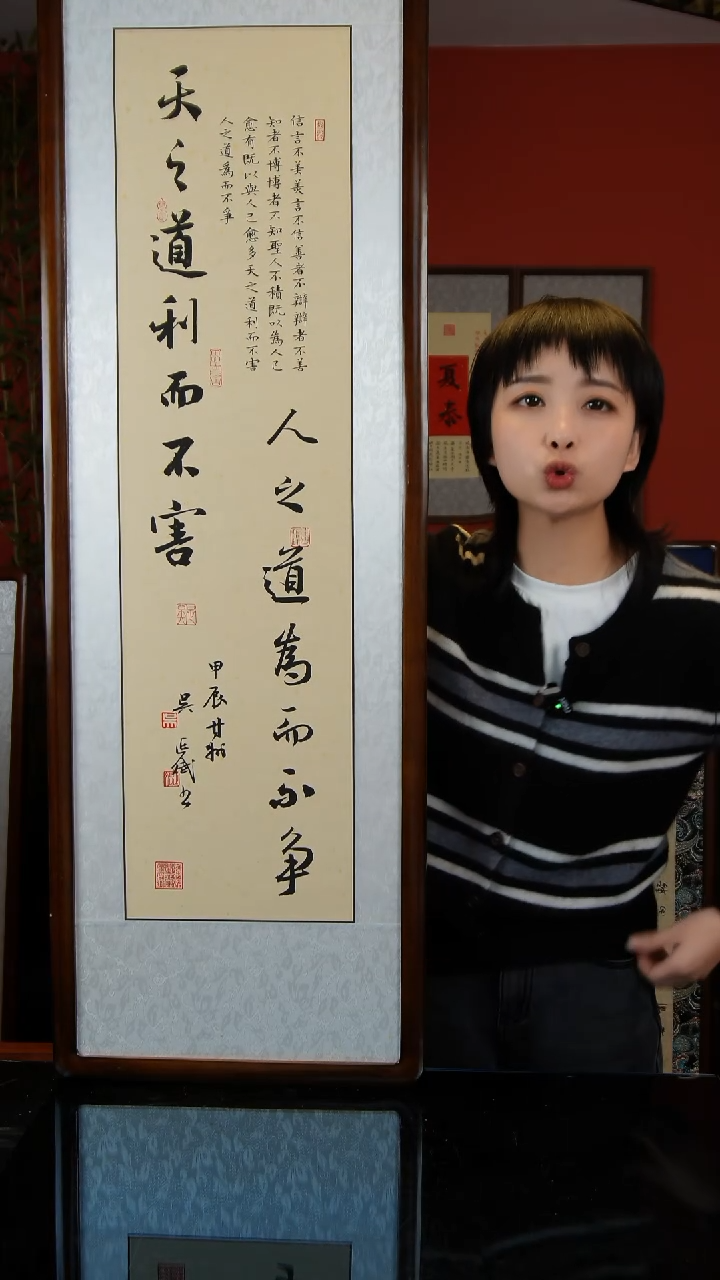 天之道利而不害
人之道為而不争
信言不美美言不信善者不辯辯者不善
知者不博博者不知聖人不積既以為人己
愈有既以與人己愈多天之道利而不害
人之道為而不爭
甲辰
吴